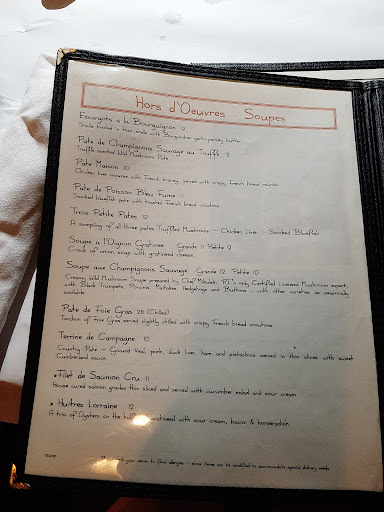 Hors d'Oeuvres Soupes
Escargots a la Bourguignon 12
Snails broiled in their shells with Burgundian garlic-parsley butter
Pate de Champignons Sauvage au Truffle 9
Truffle scented Wild Mushroom Pate
Pate Maison 10
Chicken liver mousse with French brandy served with crispy French bread rounds
Pate de Poisson Bleu Fume 11
Smoked bluefish pate with toasted French bread croutons
Trois Petite Pates 12
A sampling of all three pates Truffled Mushroom - Chicken Liver - Smoked Bluefish
Soupe a l'Oignon Gratinee Grande 11 Petite 9
Crock of onion soup with gratineed cheese
Soupe aux Champignons Sauvage Grande 12 Petite 10
Creamy Wild Mushroom Soupe prepared by Chef Mikulak "RI"'s only Certified Licensed Mushroom expert,
with Black Trumpets, Porcinis, Maitakes, Hedgehogs and Buttons - with other varieties as seasonally
available
Pate de Foie Gras 28 (Chilled)
Torchon of Foie Gras served slightly chilled with crispy French bread croutons
Terrine de Campagne 10
Country Pate - Ground Veal, pork, duck liver, ham and pistachios served in thin slices with sweet
Cumberland sauce
*Filet de Saumon Cru 11
House cured salmon gravlax thin sliced and served with cucumber salad and sour cream
*Huitres Lorraine 12
A trio of Oysters on the half gratineed with sour cream, bacon & horseradish
your server to food allergies - some items can be modified to accommodate special dietary needs